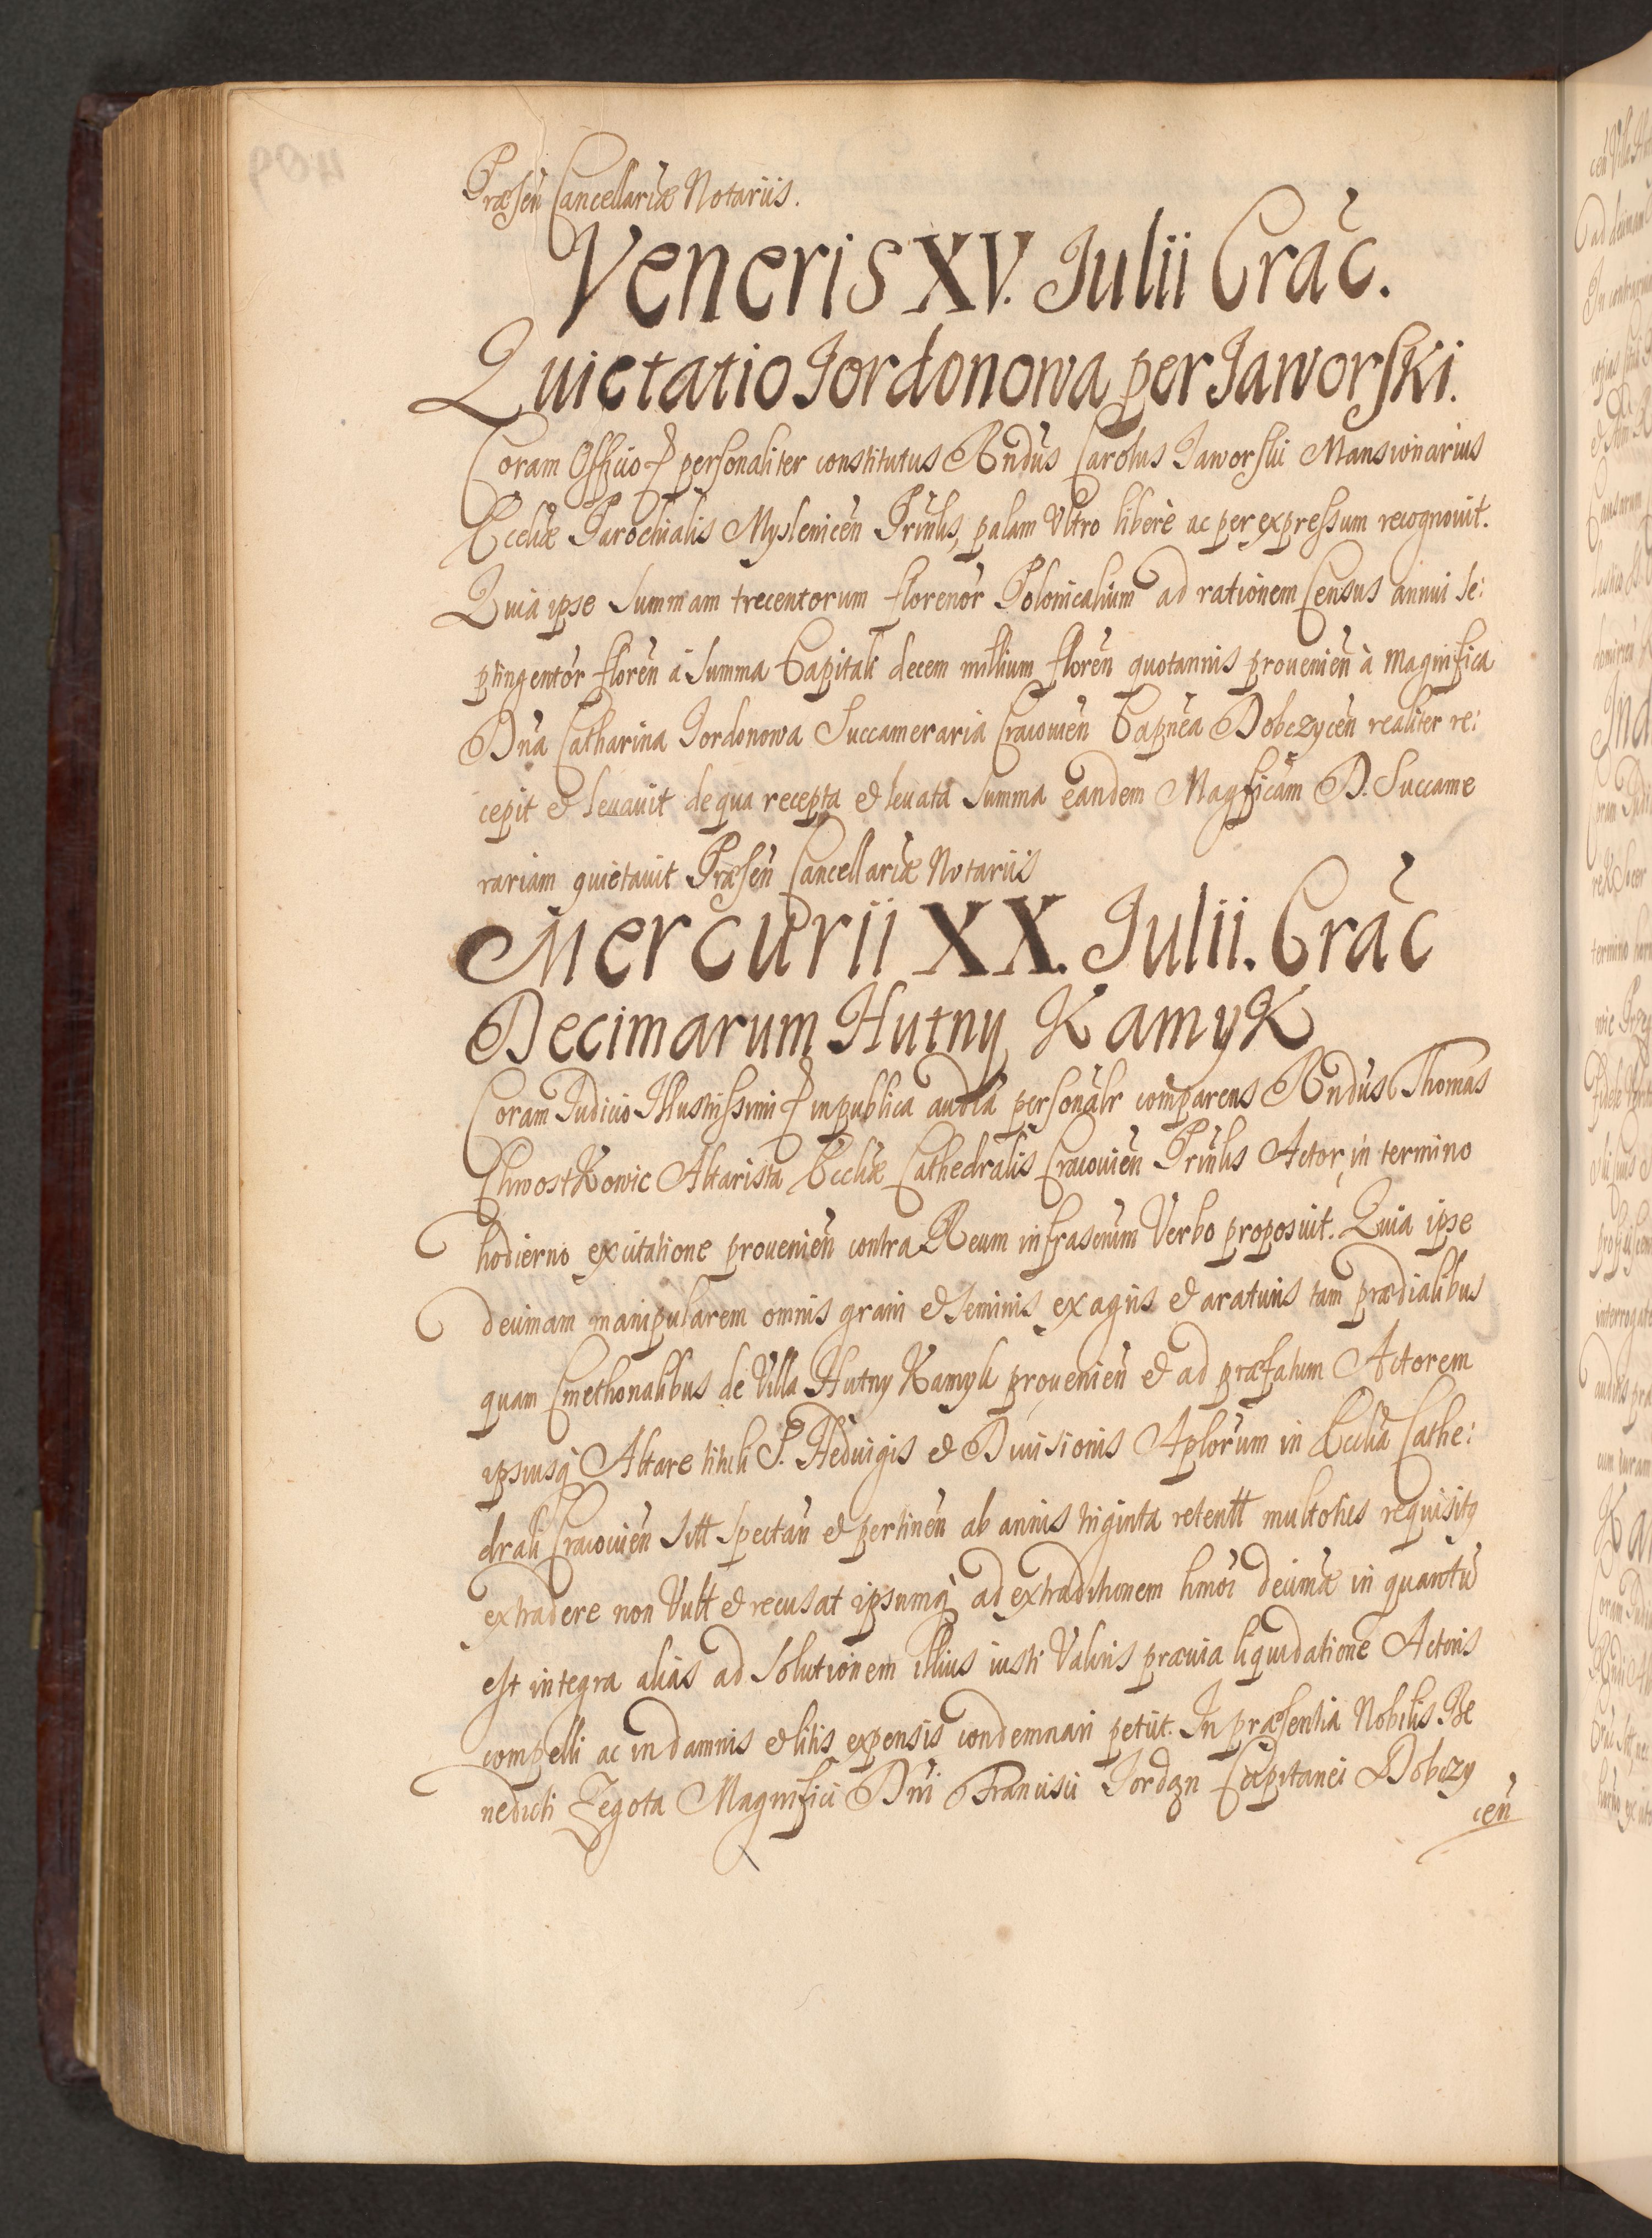 Præsen̄ Cancellariæ Notariis.
Veneris XV. Julii Crac̄.
Quietatio Jordonowa per Jaworski.
Coram Officio & personaliter constitutus Rndus Carolus Jaworski Mansionarius
Eccliæ Parochialis Myslenicen̄ Prinlis, palam Vltro liberè ac per expressum recognouit.
Quia ipse Summam trecentorum florenor̄ Polonicalium ad rationem Census annui se:
ptingentor̄ floren̄ à Summa Capitali decem millium floren̄ quotannis prouenien̄ à Magnifica
Dna Catharina Jordonowa Succameraria Cracouien̄ Capnea Dobczycen̄ realiter re:
cepit et leuauit de qua recepta et leuata Summa eandem Magficam D. Succame
rariam quietauit Præsen̄ Cancellariæ Notariis
Mercurii XX. Julii. Crac̄
Decimarum Hutny Kamyk
Coram Judicio Illustrissimi & in publica audia personalr comparens Rndus Thomas
Chwostkowic Altarista Eccliæ Cathedralis Cracouien̄ Prinlis Actor, in termino
hodierno ex citatione prouenien̄ contra Reum infrascrium Verbo proposuit. Quia ipse
decimam manipularem omnis grani et seminis ex agris et araturis tam prædialibus
quam Cmethonalibus de Villa Hutny Kamyk prouenien̄ et ad præfatum Actorem
ipsiusq Altare tituli S. Hedwigis et Diuisionis Aplorum in Ecclia Cathe:
drali Cracouien̄ Sitt spectan̄ et pertinen̄ ab annis triginta retentt multoties requisitg
extradere non Vult et recusat ipsumq ad extraditionem hmoi decimæ in quantū
est integra aliàs ad Solutionem illius iusti Valoris præuia liquidatione Actoris
compelli ac in damnis et litis expensis condemnari petiit. In præsentia Nobilis Be
nedicti Zegota Magnifici Dni Francisci Jordan Capitanei Dobczy
cen̄